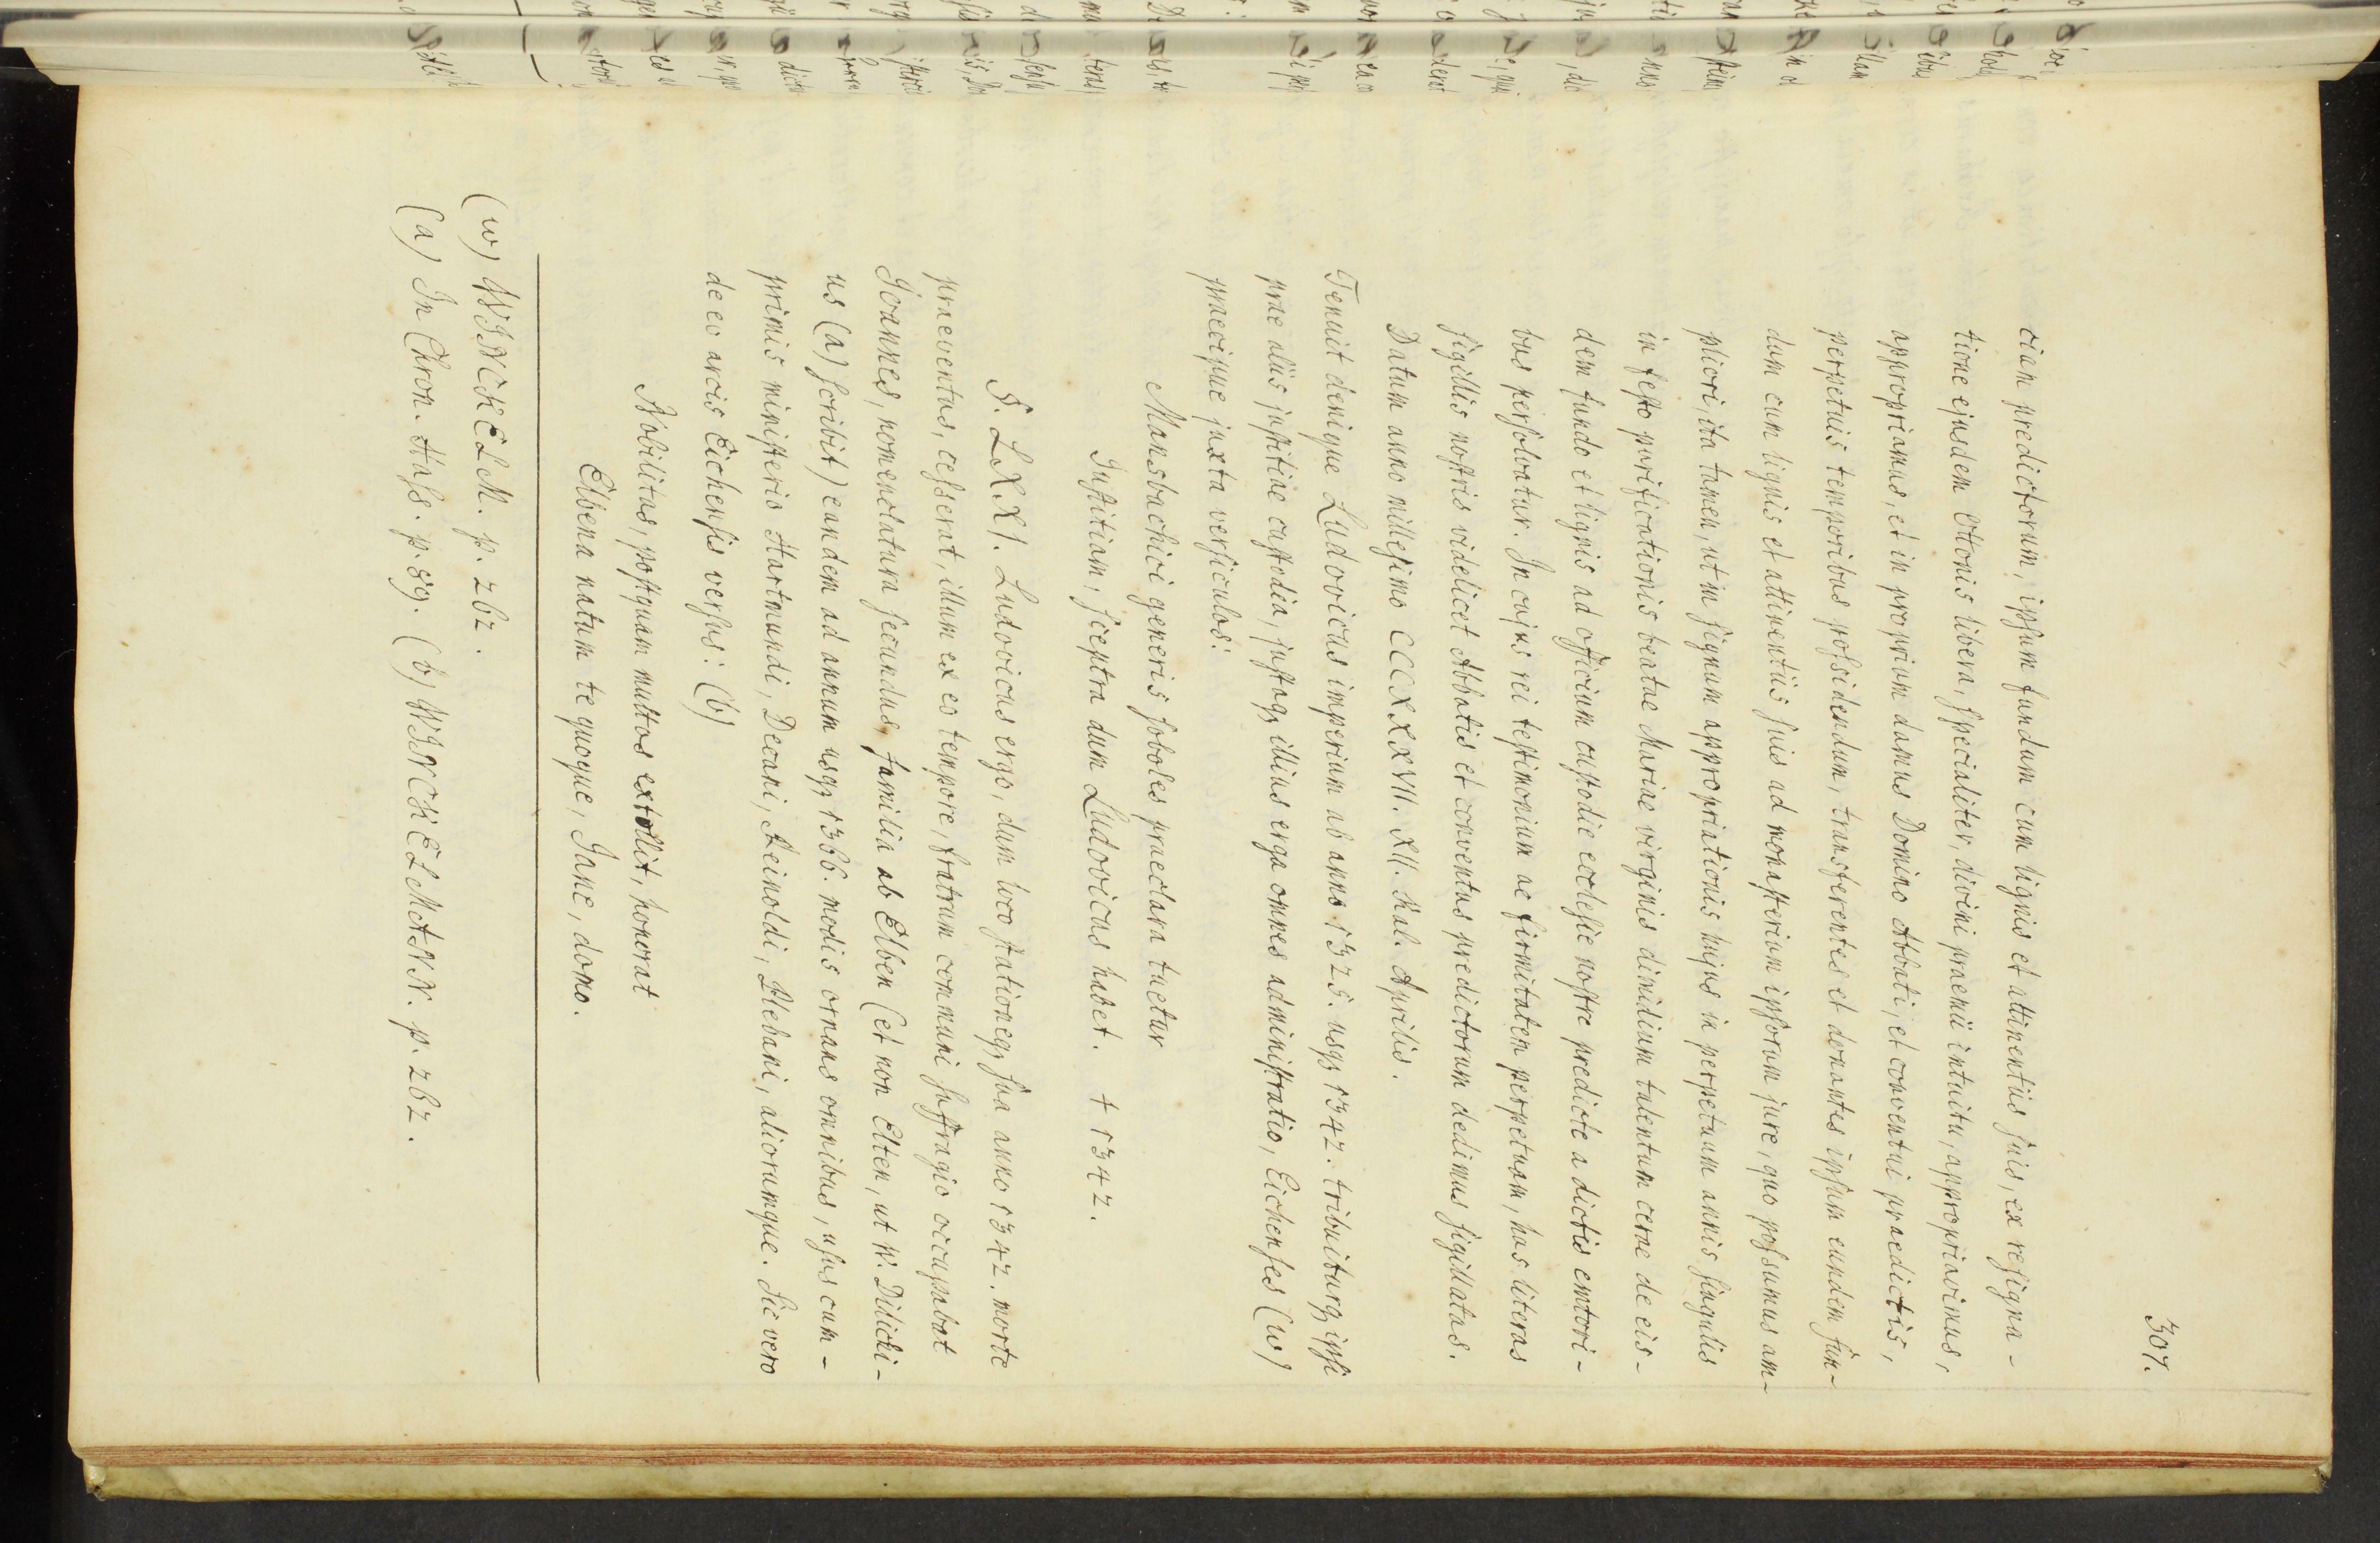 307.
ciam predictorum, ipsum fundum cum lignis et attinentiis suis, ex resigna-
tione ejusdem Ottonis libera, specialiter, divini praemii intuitu, appropriavimus,
appropriamus, et in proprium damus Domino Abbati, et conventui praedictis,
perpetuis temporibus possidendum, transferentes et donantes ipsum eundem fun-
dum cum lignis et attinentiis suis ad monasterium ipsorum jure, quo possumus am-
pliori, ita tamen, ut in signum appropriationis hujus in perpetuum annis singulis
in festo purificationis beatae Mariae virginis dimidium talentum cerae de eis-
dem fundo et lignis ad officium custodie ecclesie nostre predicte a dictis emtori-
bus persolvatur. In cujus rei testimonium ac firmitatem perpetuam, has literas
sigillis nostris videlicet Abbatis et conventus predictorum dedimus sigillatas.
Datum anno millesimo CCCXXXVII. XII. Kal. Aprilis.
Tenuit denique Ludovicus imperium ab anno 1325. usq; 1342. tribuiturq; ipsi
prae aliis justitiae custodia, justaq; illius erga omnes administratio, Eichenses (w)
praecipue juxta versiculos:
Mansbachici generis soboles praeclara tuetur
Justitiam, sceptra dum Ludovicus habet. † 1342.
§. LXX). Ludovicus ergo, dum loco stationeq; sua anno 1342. morte
praeventus, cesserat, illum ex eo tempore, fratrum communi suffragio occupabat
Joannes, nomenclatura secundus, familia ab Elben (et non Elten, ut W. Dilichi-
us (a) scribit) eandem ad annum usq; 1366. modis ornans omnibus, usus cum-
primis ministerio Hartmundi, Decani, Reinoldi, Plebani, aliorumque. Sic vero
de eo arcis Eichensis versus: (b)
Nobilitas, postquam multos extollit, honorat
Elbena natum te quoque, Jane, domo.
(w) WINCKELM. p. 262.
(a) In Chron. Hass. p. 59. (b) WINCKELMANN. p. 262.